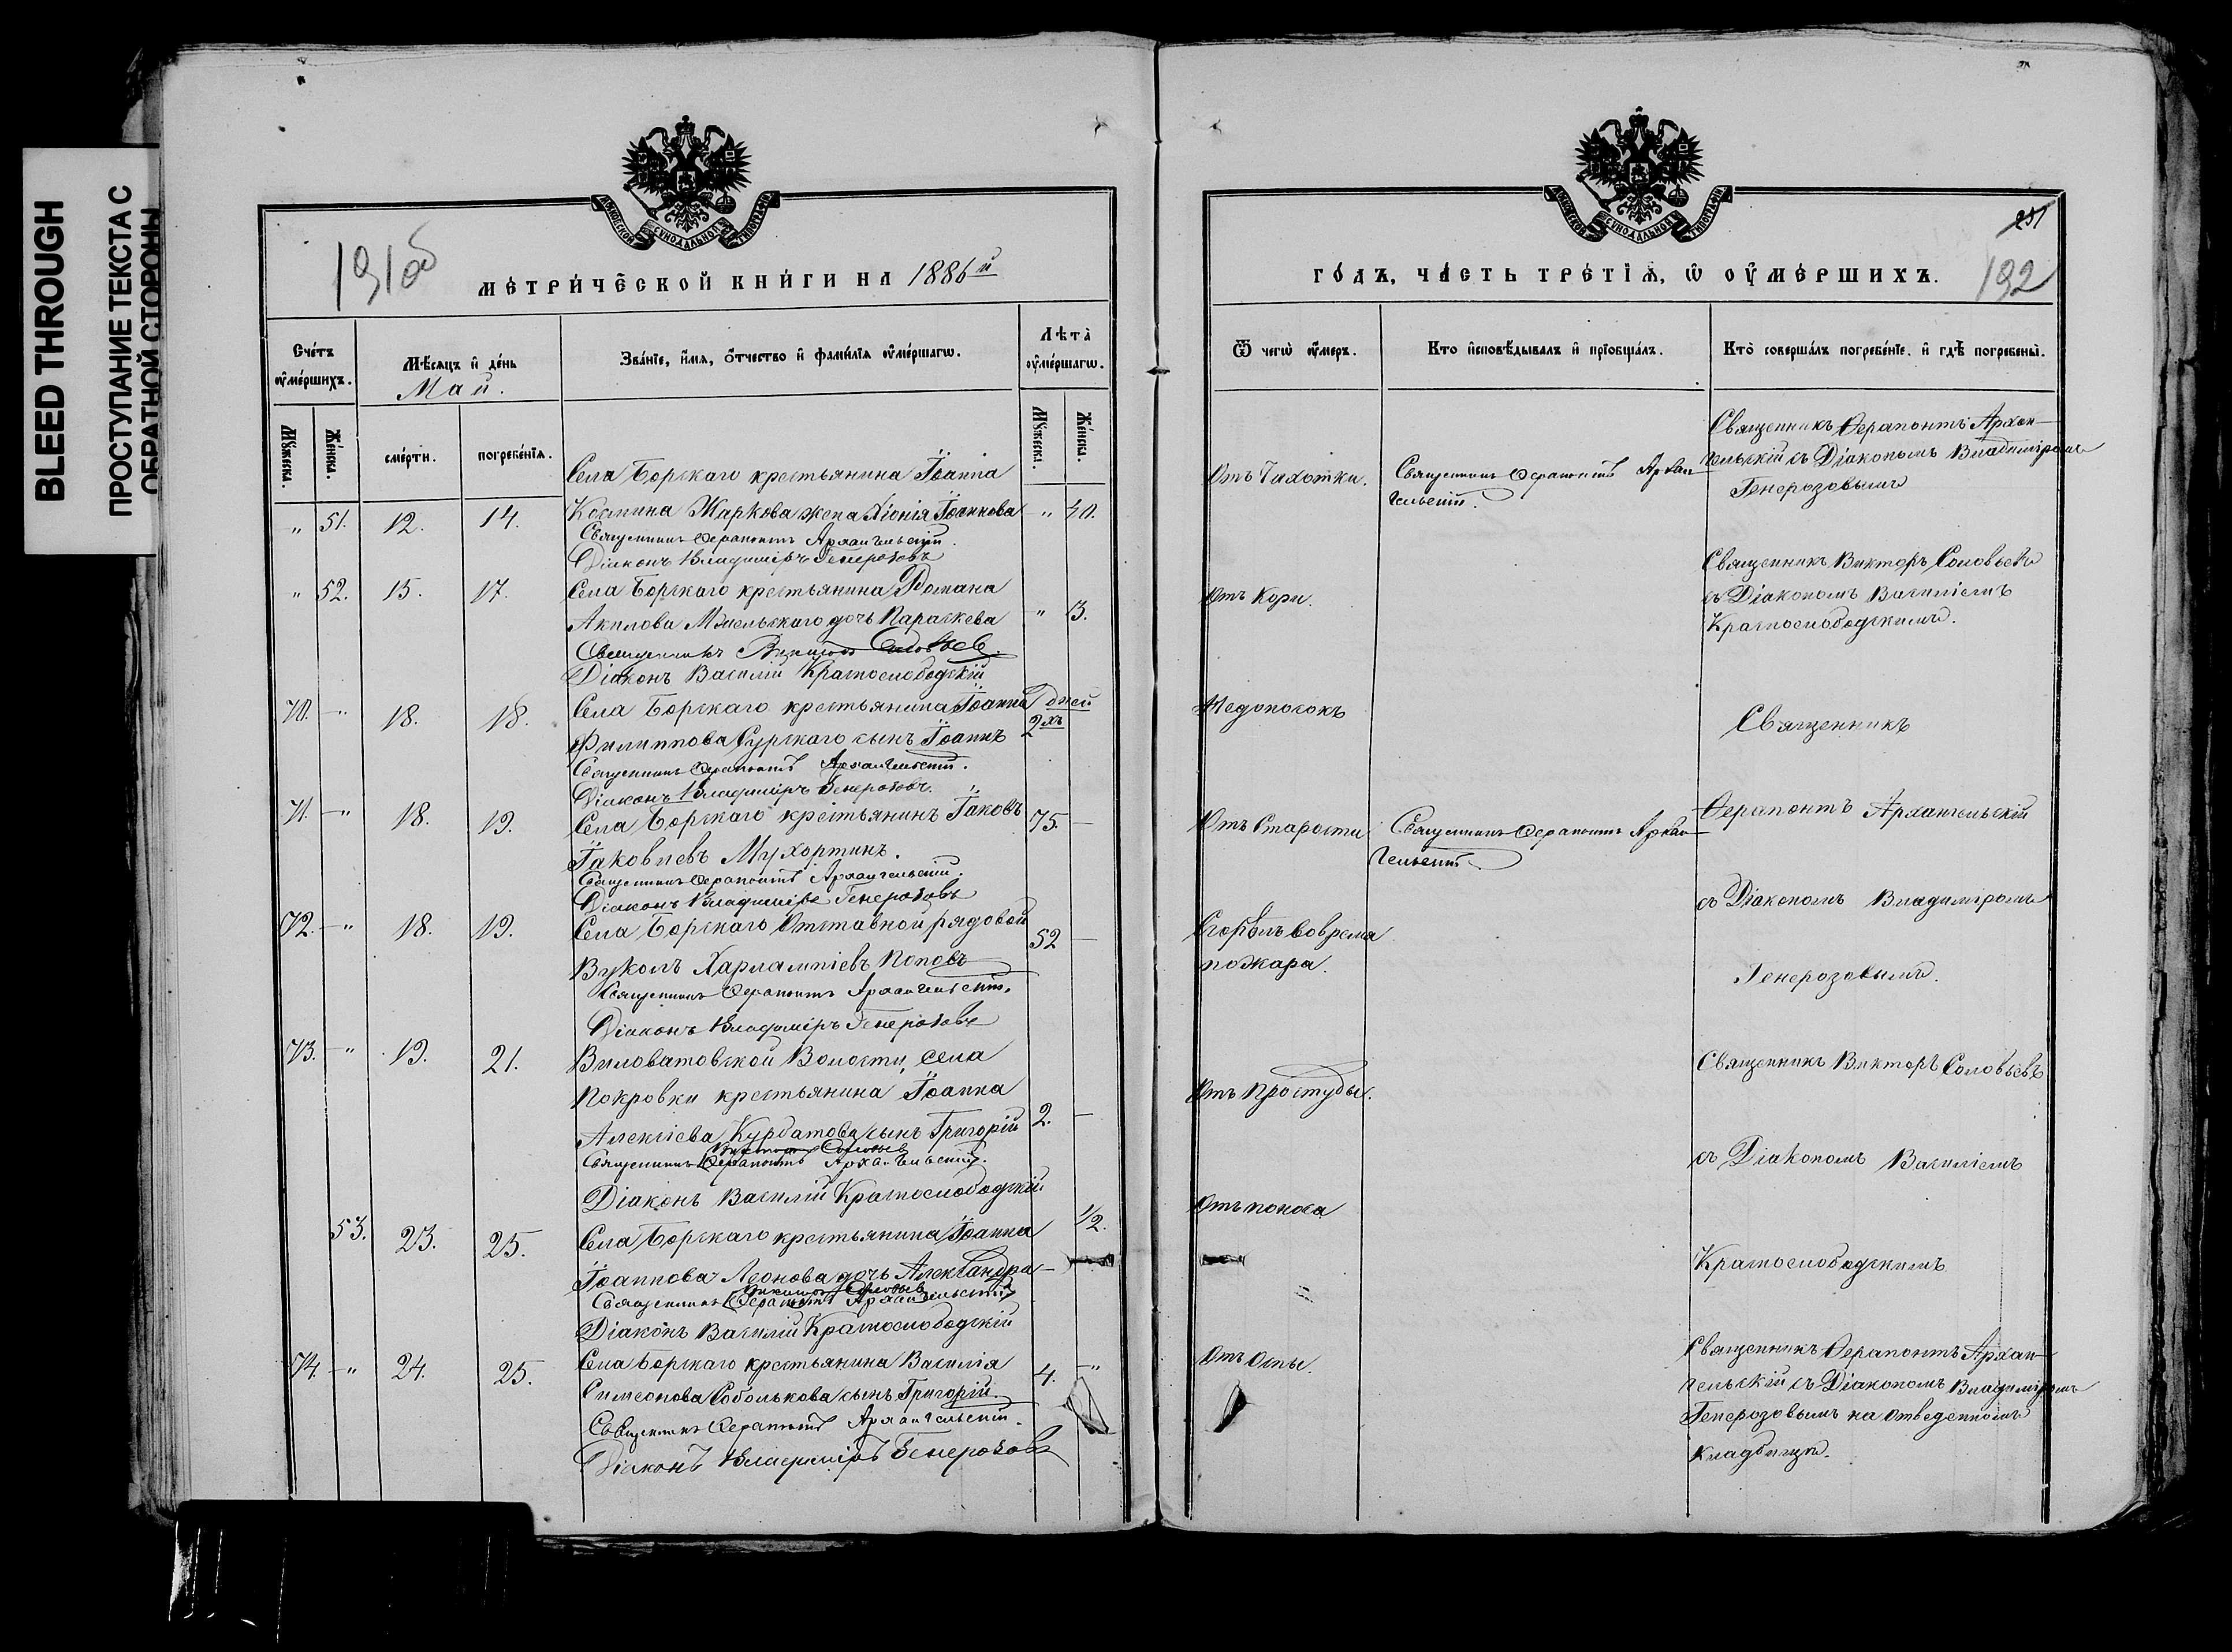 BLEED THROUGH
ПРОСТУПАНИЕ ТЕКСТА С
ОБРАТНОЙ СТОРОНЫ
191об
МЕТРИЧЕСКОЙ КНИГИ НА 1886й
Счетъ
оумершихъ.
Мѣсяцъ и день
Май.
Званіе, имя, отчество и фамилія оумершагѡ.
Лѣта
оумершагѡ.
Мꙋжеска.
Женска.
смерти.
погребенія.
Мꙋжеска.
Женска.
Села Борскаго крестьянина Іоанна
" 51. 12. 14. Космина Маркова жена Хіонія Іоаннова " 40.
Священникъ Ѳерапонтъ Архангельскій.
Діаконъ Владиміръ Генерозовъ
" 52. 15. 17. Села Борскаго крестьянина Романа
Акилова Ммельскаго дочь Параскева " 3.
Священникъ Викторъ Соловьевъ
Діаконъ Василій Краснослободскій
70. - " 18. 18. Села Борскаго крестьянина Іоанна дней
Филиппова Сурскаго сынъ Іоаннъ 2хъ
Священникъ Ѳерапонтъ Архангельскій.
Діаконъ Владиміръ Генерозовъ.
71. - " 18. 19. Села Борскаго крестьянинъ Іаковъ 75. -
Іаковлевъ Мухортинъ.
Священникъ Ѳерапонтъ Архангельскій.
Діаконъ Владиміръ Генерозовъ
72. - " 18. 19. Села Борскаго Отставной рядовой 52 -
Вуколъ Харлампіевъ Поповъ
Священникъ Ѳерапонтъ Архангельскій.
Діаконъ Владиміръ Генерозовъ
73. - " 19. 21. Виловатовской Волости, села
Покровки крестьянина Іоанна
Алексіева Курбатова сынъ Григорій 2. -
Викторъ Соловьев
Священникъ Ѳерапонтъ Архангельскій.
Діаконъ Василій Краснослободскій
53. 23. 25. Села Борскаго крестьянина Іоанна 1/2.
Іоаннова Леонова дочь Александра
Викторъ Соловьев
Священникъ Ѳерапонтъ Архангельскій
Діаконъ Василій Краснослободскій
74. - " 24. 25. Села Борскаго крестьянина Василія 4. - "
Симеонова Соболькова сынъ Григорій.
Священникъ Ѳерапонтъ Архангельскій.
Діаконъ Владиміръ Генерозовъ
251
192
ГОДЪ, ЧАСТЬ ТРЕТІЯ, Ѡ ОУМЕРШИХЪ.
Ѿ чегѡ оумеръ.
Кто исповѣдывалъ и пріобщалъ.
Кто совершалъ погребеніе, и гдѣ погребены.
Отъ Чахотки.
Священникъ Ѳерапонтъ Архан-
гельскій.
Священникъ Ѳерапонтъ Архан-
гельскій съ Діакономъ Владиміромъ
Генерозовымъ
Отъ Кори.
Священникъ Викторъ Соловьевъ
съ Діакономъ Василіемъ
Краснослободскимъ.
Недоносокъ
Священникъ
Отъ Старости
Священникъ Ѳерапонтъ Архан-
гельскій
Ѳерапонтъ Архангельскій
съ Діакономъ Владиміромъ
Сгорѣлъ во время
пожара.
Генерозовымъ.
Отъ Простуды.
Священникъ Викторъ Соловьевъ
съ Діакономъ Василіемъ
Отъ поноса
Краснослободскимъ
Отъ Оспы.
Священникъ Ѳерапонтъ Архан-
гельскій съ Діакономъ Владиміромъ
Генерозовымъ на отведенномъ
кладбищѣ.